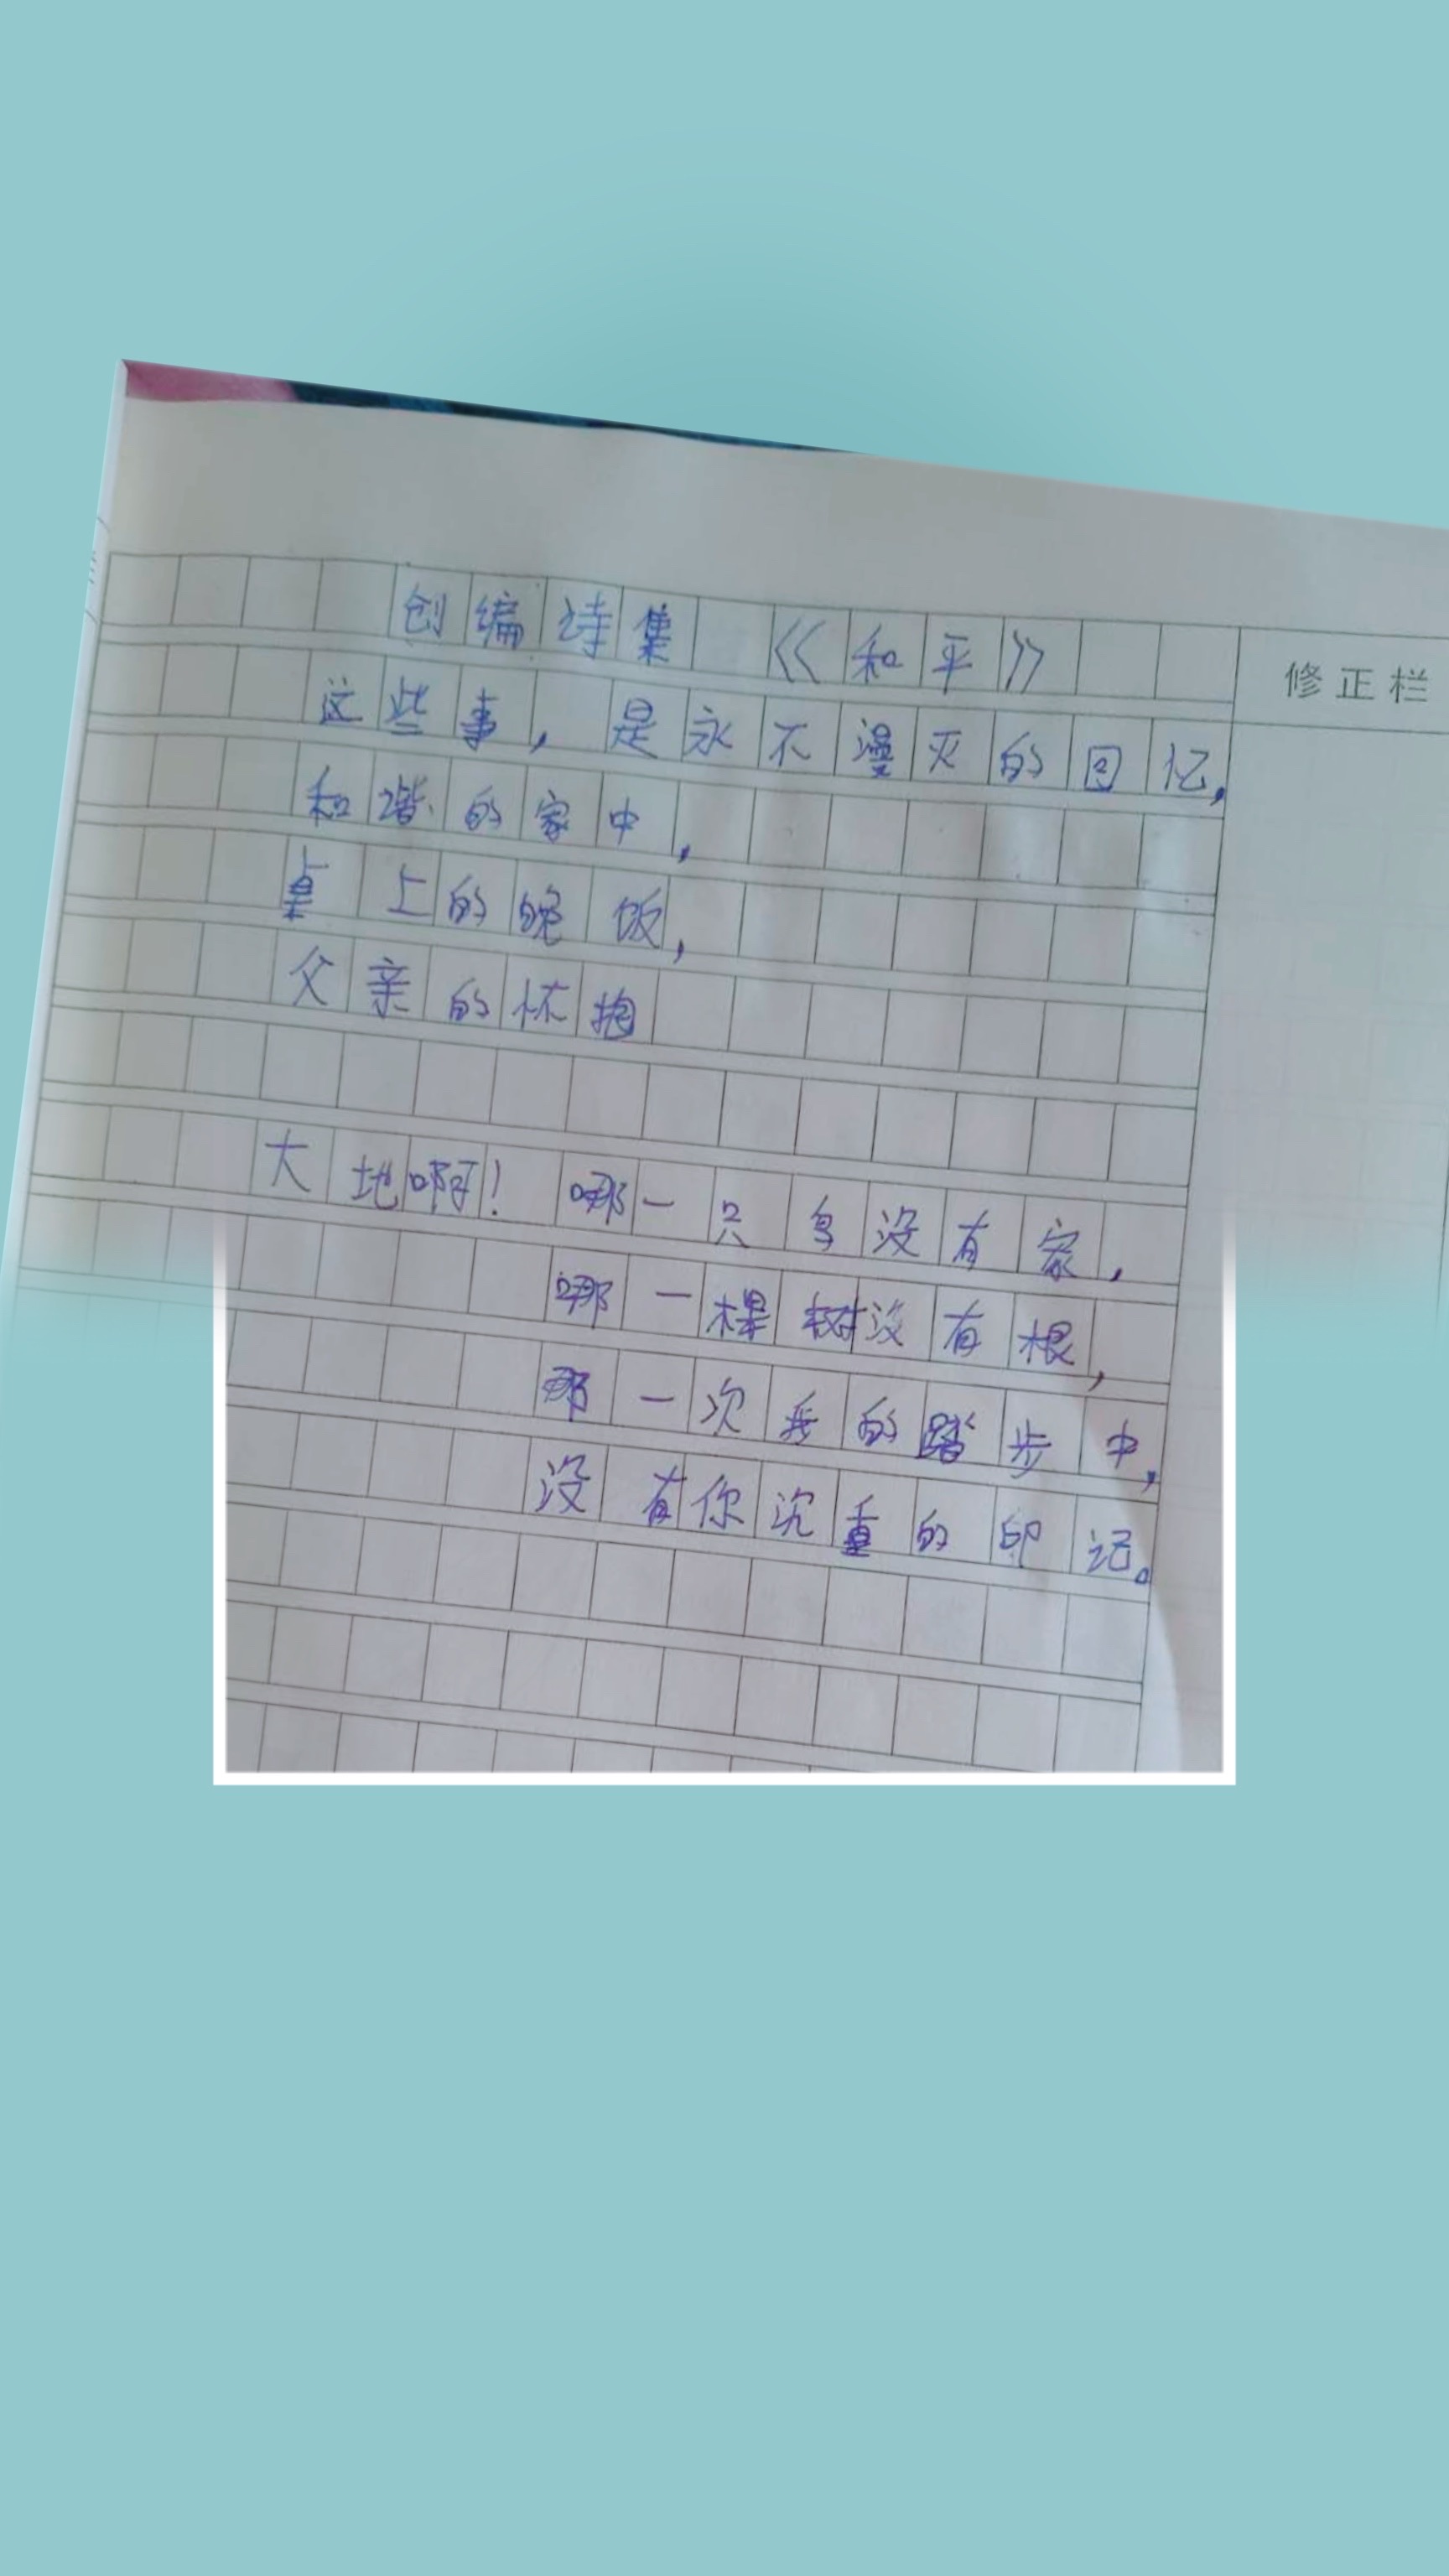 创编诗集 《和平》
修正栏
这些事，是永不漫灭的回忆，
和谐的家中，
桌上的晚饭，
父亲的怀抱
大地啊！哪一只鸟没有家，
哪一棵树没有根，
哪一次我的踏步中，
没有你沉重的印记。